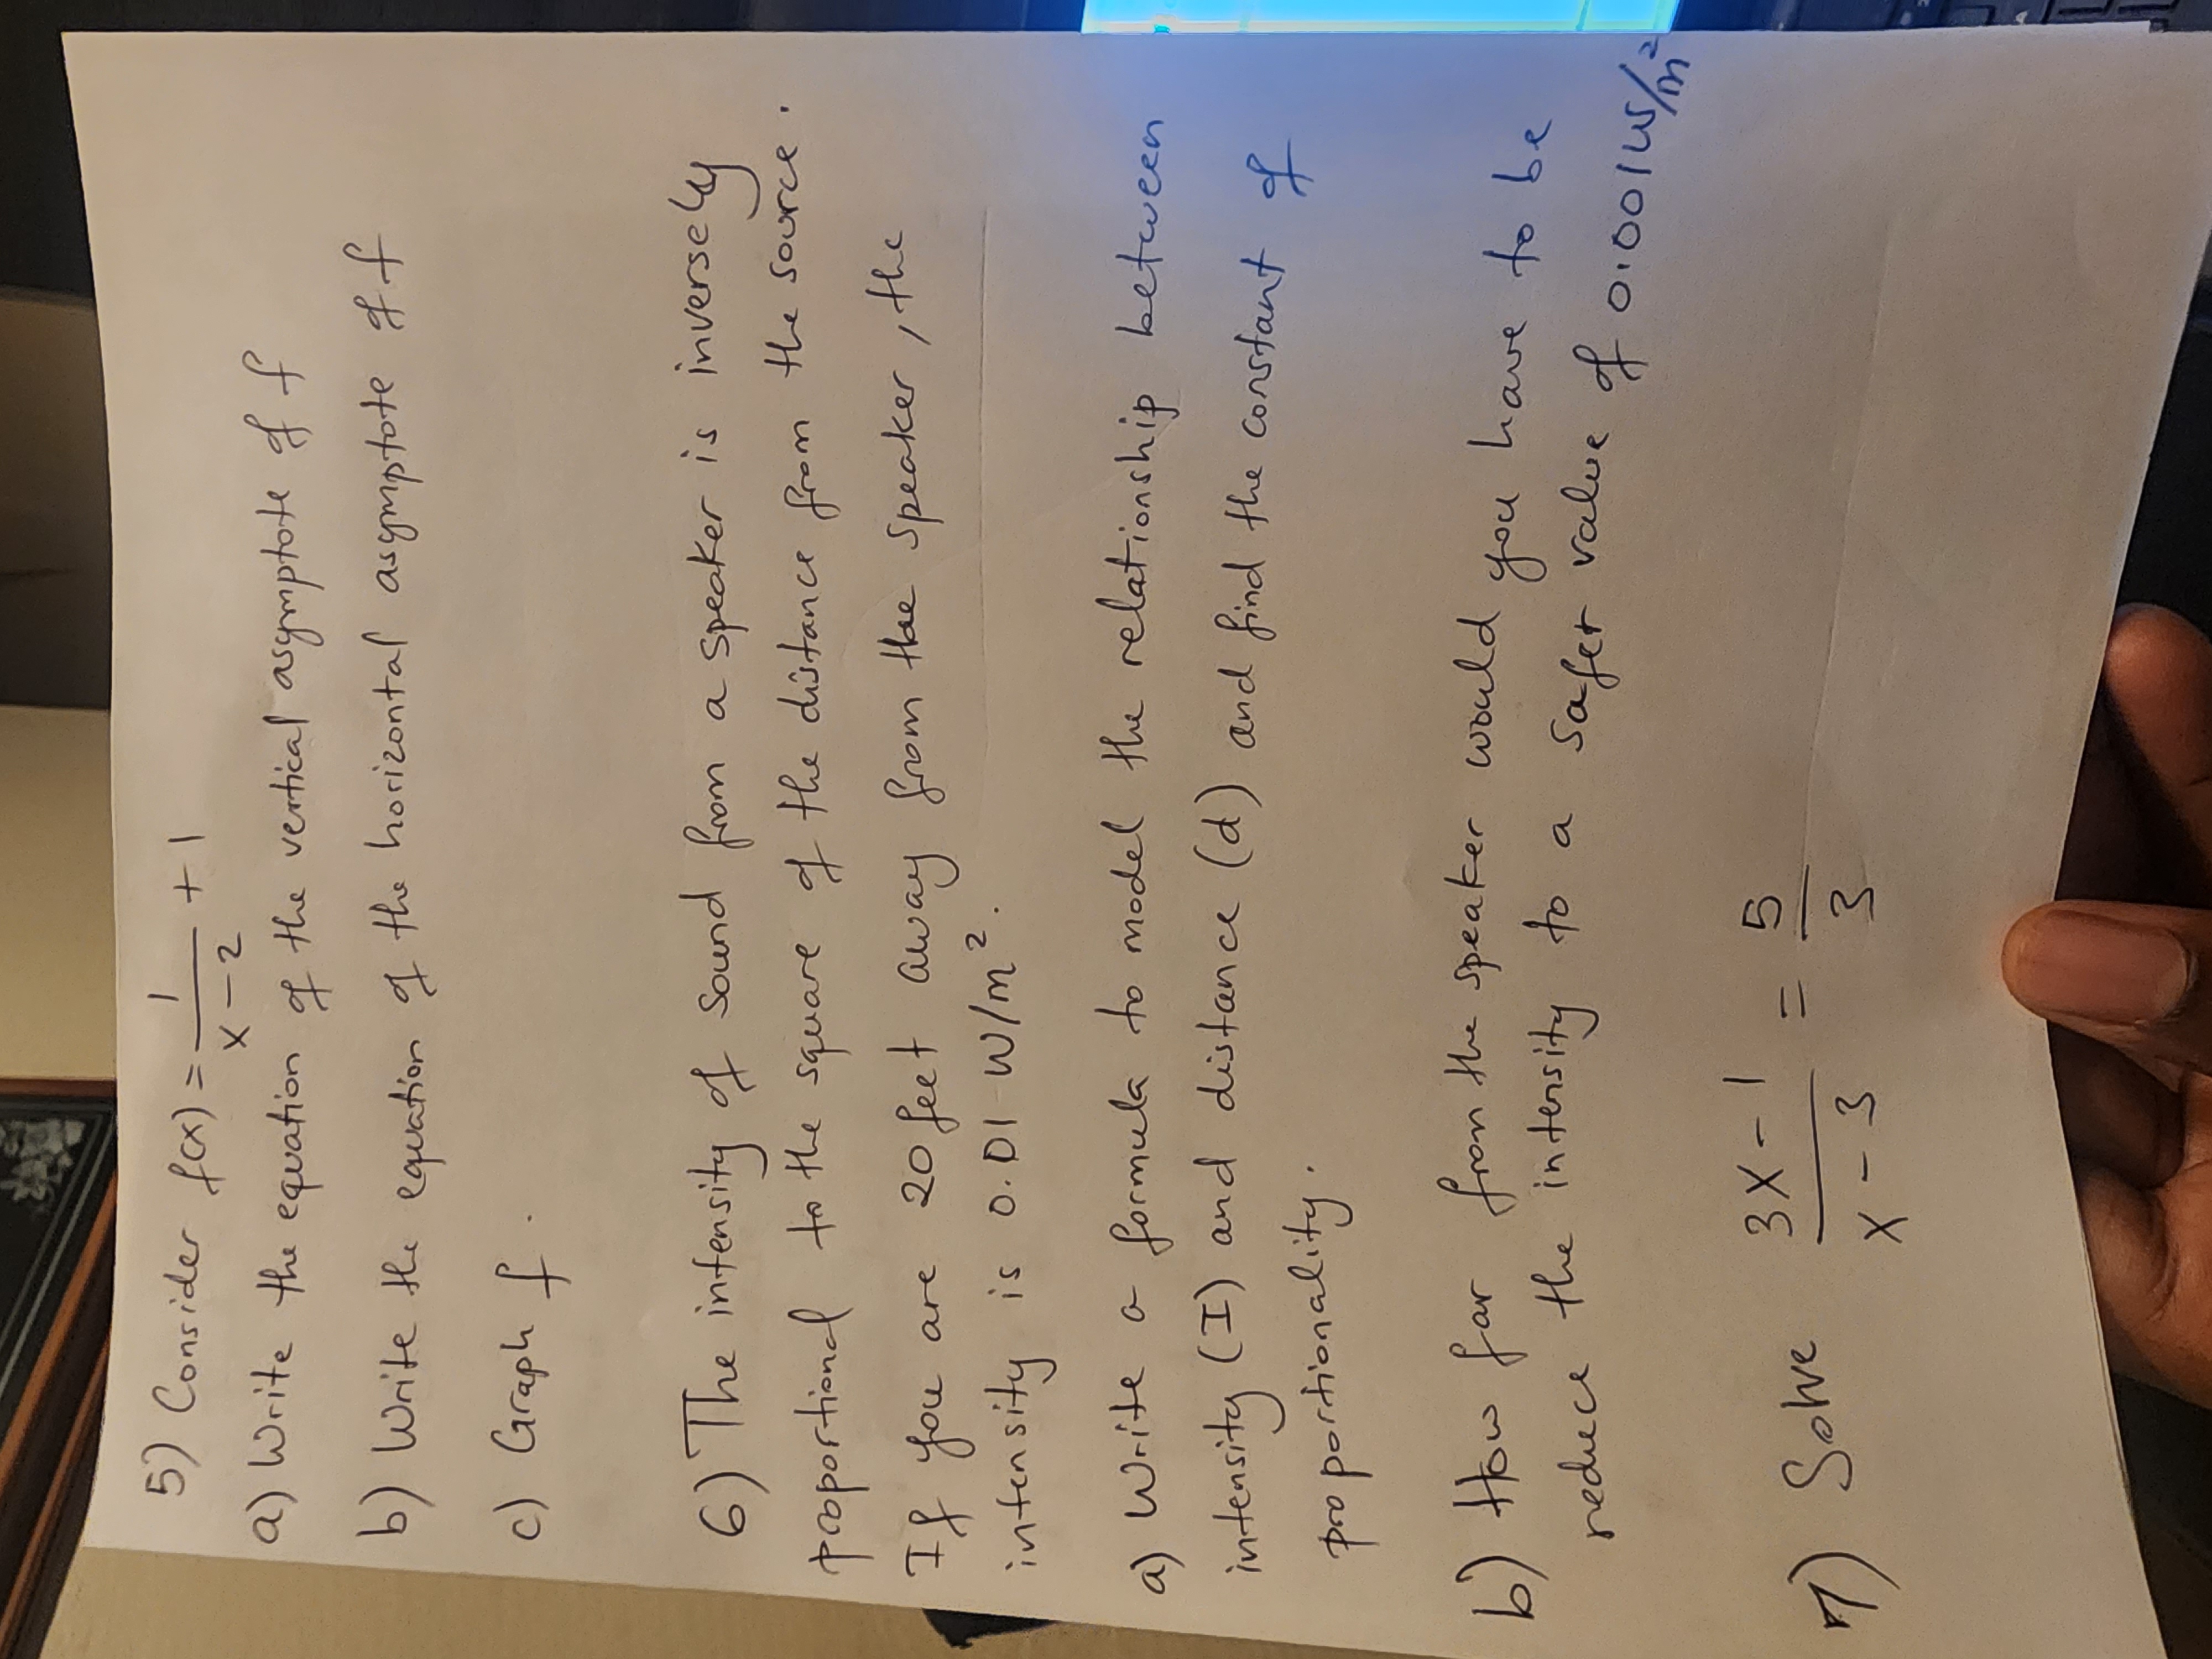 5) Consider f(x) = 1/(x - 2) + 1
a) Write the equation of the vertical asymptote of f
b) Write the equation of the horizontal asymptote of f
c) Graph f.
6) The intensity of sound from a speaker is inversely
proportional to the square of the distance from the source.
If you are 20 feet away from the speaker, the
intensity is 0.01 W/m².
a) Write a formula to model the relationship between
intensity (I) and distance (d) and find the constant of
proportionality.
b) How far from the speaker would you have to be
reduce the intensity to a safer value of 0.001 W/m²
7) Solve (3x - 1)/(x - 3) = 5/3